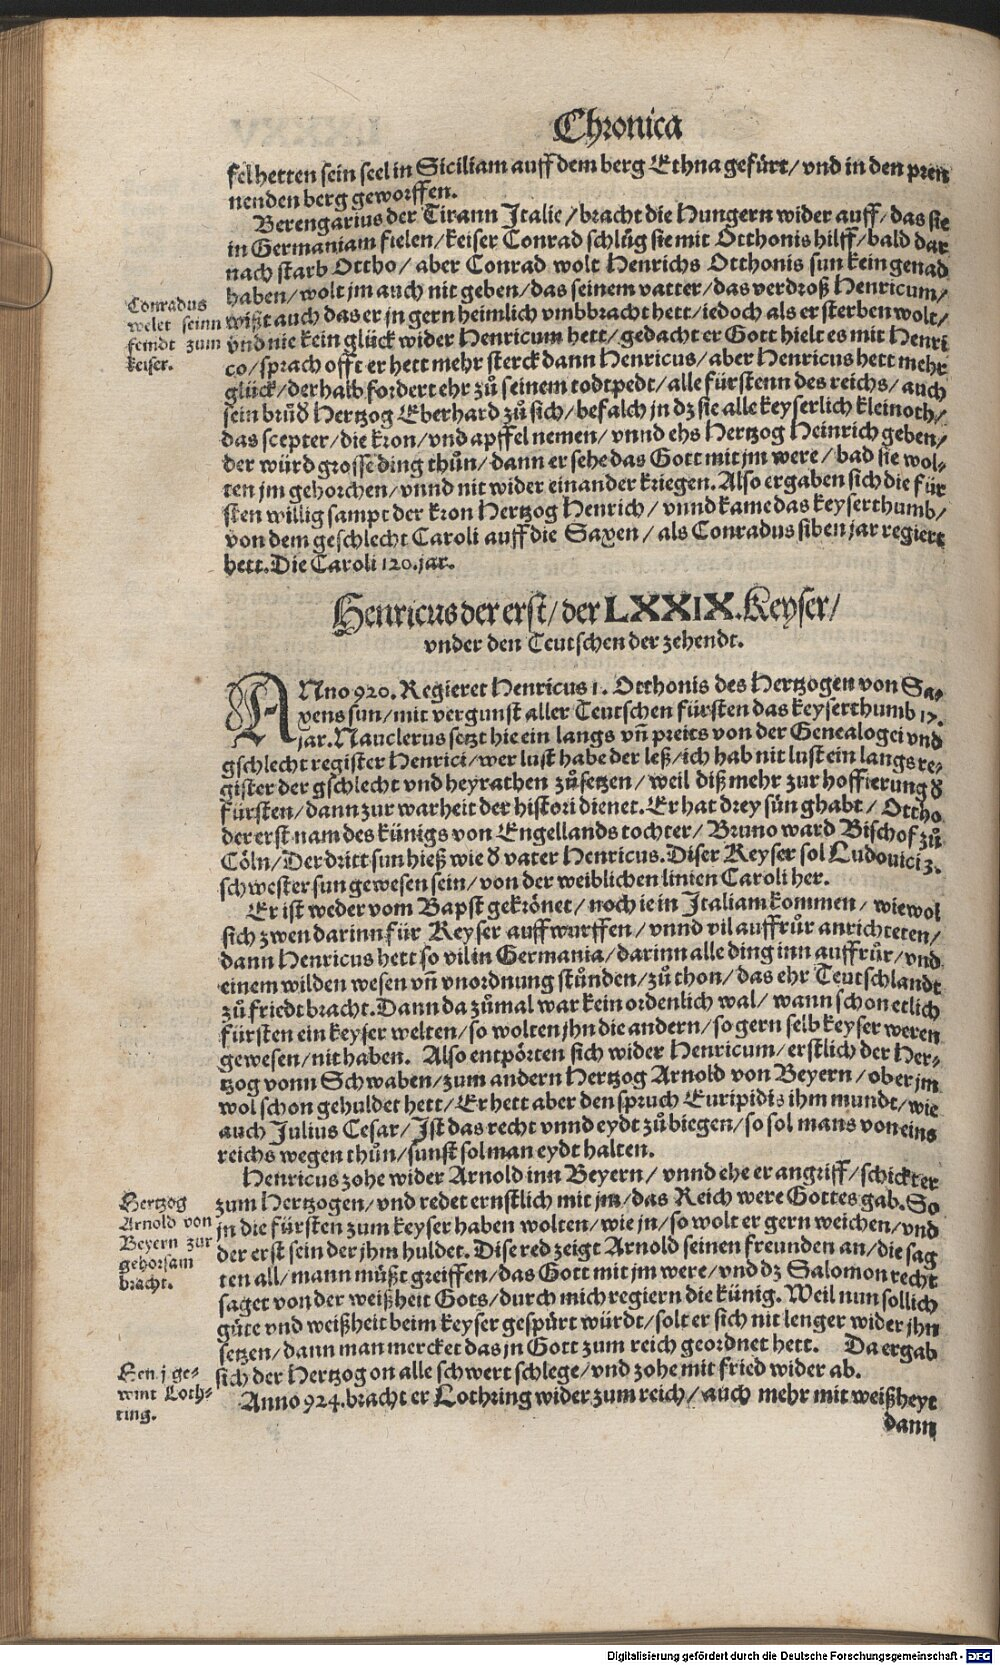 Chronica
fel hetten sein seel in Siciliam auff dem berg Ethna gefürt/ vnd in den pren
nenden berg geworffen.
Berengarius der Tirann Italie/ bracht die Hungern wider auff/ das sie
in Germaniam fielen/ keiser Conrad schlůg sie mit Otthonis hilff/ bald dar
nach starb Ottho/ aber Conrad wolt Henrichs Otthonis sun kein genad
haben/ wolt jm auch nit geben/ das seinem vatter/ das verdroß Henricum/
Conradus
welet seinn
feindt zum
keiser.
wißt auch das er jn gern heimlich vmbbracht hett/ iedoch als er sterben wolt/
vnd nie kein glück wider Henricum hett/ gedacht er Gott hielt es mit Henri
co/ sprach offt er hett mehr sterck dann Henricus/ aber Henricus hett mehr
glück/ derhalb fordert ehr zů seinem todtpedt/ alle fürstenn des reichs/ auch
sein brůd Hertzog Eberhard zů sich/ befalch jn dz sie alle keyserlich kleinoth/
das scepter/ die kron/ vnd apffel nemen/ vnnd ehs Hertzog Heinrich geben/
der würd grosse ding thůn/ dann er sehe das Gott mit jm were/ bad sie wol-
ten jm gehorchen/ vnnd nit wider einander kriegen. Also ergaben sich die für
sten willig sampt der kron Hertzog Henrich/ vnnd kame das keyserthumb/
von dem geschlecht Caroli auff die Saxen/ als Conradus siben jar regiert
hett. Die Caroli 120. jar.
Henricus der erst/ der LXXIX. Keyser/
vnder den Teutschen der zehendt.
ANno 920. Regieret Henricus 1. Otthonis des Hertzogen von Sa-
xens sun/ mit vergunst aller Teutschen fürsten das keyserthumb 17.
jar. Nauclerus setzt hie ein langs vñ preits von der Genealogei vnd
gschlecht register Henrici/ wer lust habe der leß/ ich hab nit lust ein langs re-
gister der gschlecht vnd heyrathen zůsetzen/ weil diß mehr zur hoffierung d
fürsten/ dann zur warheit der histori dienet. Er hat drey sün ghabt/ Ottho
der erst nam des künigs von Engellands tochter/ Bruno ward Bischof zů
Cöln/ Der dritt sun hieß wie d vater Henricus. Diser Keyser sol Ludouici 3.
schwester sun gewesen sein/ von der weiblichen linien Caroli her.
Er ist weder vom Bapst gekrönet/ noch ie in Italiam kommen/ wiewol
sich zwen darinn für Keyser auffwurffen/ vnnd vil auffrůr anrichteten/
dann Henricus hett so vil in Germania/ darinn alle ding inn auffrůr/ vnd
einem wilden wesen vñ vnordnung stůnden/ zů thon/ das ehr Teutschlandt
zů friedt bracht. Dann da zůmal war kein ordenlich wal/ wann schon etlich
fürsten ein keyser welten/ so wolten jhn die andern/ so gern selb keyser weren
gewesen/ nit haben. Also entpörten sich wider Henricum/ erstlich der Her-
tzog vonn Schwaben/ zum andern Hertzog Arnold von Beyern/ ober jm
wol schon gehuldet hett/ Er hett aber den spruch Euripidis ihm mundt/ wie
auch Julius Cesar/ Ist das recht vnnd eydt zů biegen/ so sol mans von eins
reichs wegen thůn/ sunst sol man eydt halten.
Henricus zohe wider Arnold inn Beyern/ vnnd ehe er angriff/ schickt er
Hertzog
Arnold von
Beyern zur
gehorsam
bracht.
zum Hertzogen/ vnd redet ernstlich mit jm/ das Reich were Gottes gab. So
jn die fürsten zum keyser haben wolten/ wie jn/ so wolt er gern weichen/ vnd
der erst sein der jhm huldet. Dise red zeigt Arnold seinen freunden an/ die sag
ten all/ mann müßt greiffen/ das Gott mit jm were/ vnd dz Salomon recht
saget von der weißheit Gots/ durch mich regiern die künig. Weil nun sollich
güte vnd weißheit beim keyser gespürt würdt/ solt er sich nit lenger wider jhn
setzen/ dann man mercket das jn Gott zum reich geordnet hett. Da ergab
sich der Hertzog on alle schwert schlege/ vnd zohe mit fried wider ab.
Hen. j ge-
wint Loth-
ring.
Anno 924. bracht er Lothring wider zum reich/ auch mehr mit weißheyt
dann
Digitalisierung gefördert durch die Deutsche Forschungsgemeinschaft - DFG